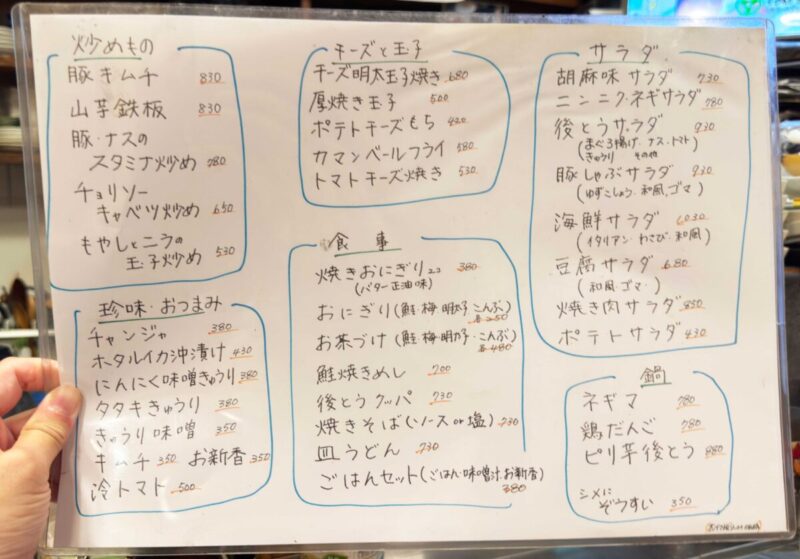 炒めもの
豚キムチ 830
山芋鉄板 830
豚・ナスの
スタミナ炒め 780
チョリソー
キャベツ炒め 650
もやしとニラの
玉子炒め 530
珍味・おつまみ
チャンジャ 380
ホタルイカ沖漬け 430
にんにく味噌きゅうり 380
タタキきゅうり 380
きゅうり味噌 350
キムチ 350 お新香 350
冷トマト 500
チーズと玉子
チーズ明太玉子焼き 680
厚焼き玉子 500
ポテトチーズもち 420
カマンベールフライ 580
トマトチーズ焼き 530
食事
焼きおにぎり 2コ 380
(バター正油味)
おにぎり(鮭・梅・明太子・こんぶ)
各250
お茶づけ(鮭・梅・明太子・こんぶ)
各480
鮭焼きめし 700
後とうクッパ 730
焼きそば(ソース or 塩) 730
皿うどん 730
ごはんセット(ごはん・味噌汁・お新香)
380
サラダ
胡麻味サラダ 730
ニンニク・ネギサラダ 780
後とうサラダ 930
(まぐろ揚げ・ナス・トマト
きゅうり その他)
豚しゃぶサラダ 930
(ゆずこしょう・和風・ゴマ)
海鮮サラダ 1030
(イタリアン・わさび・和風)
豆腐サラダ 680
(和風・ゴマ・)
焼き肉サラダ 850
ポテトサラダ 430
鍋
ネギマ 780
鶏だんご 780
ピリ辛後とう 880
シメに
ぞうすい 350